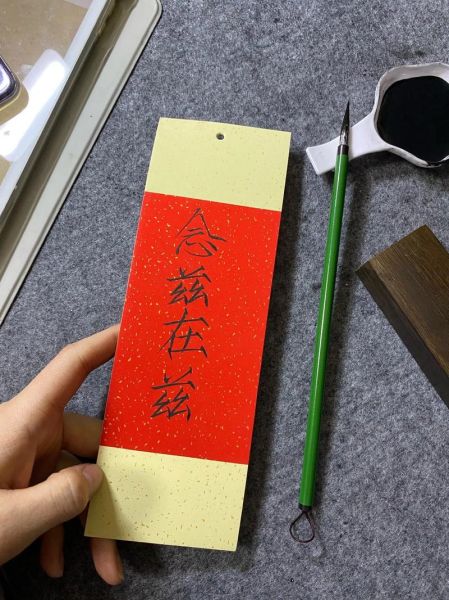 念兹在兹